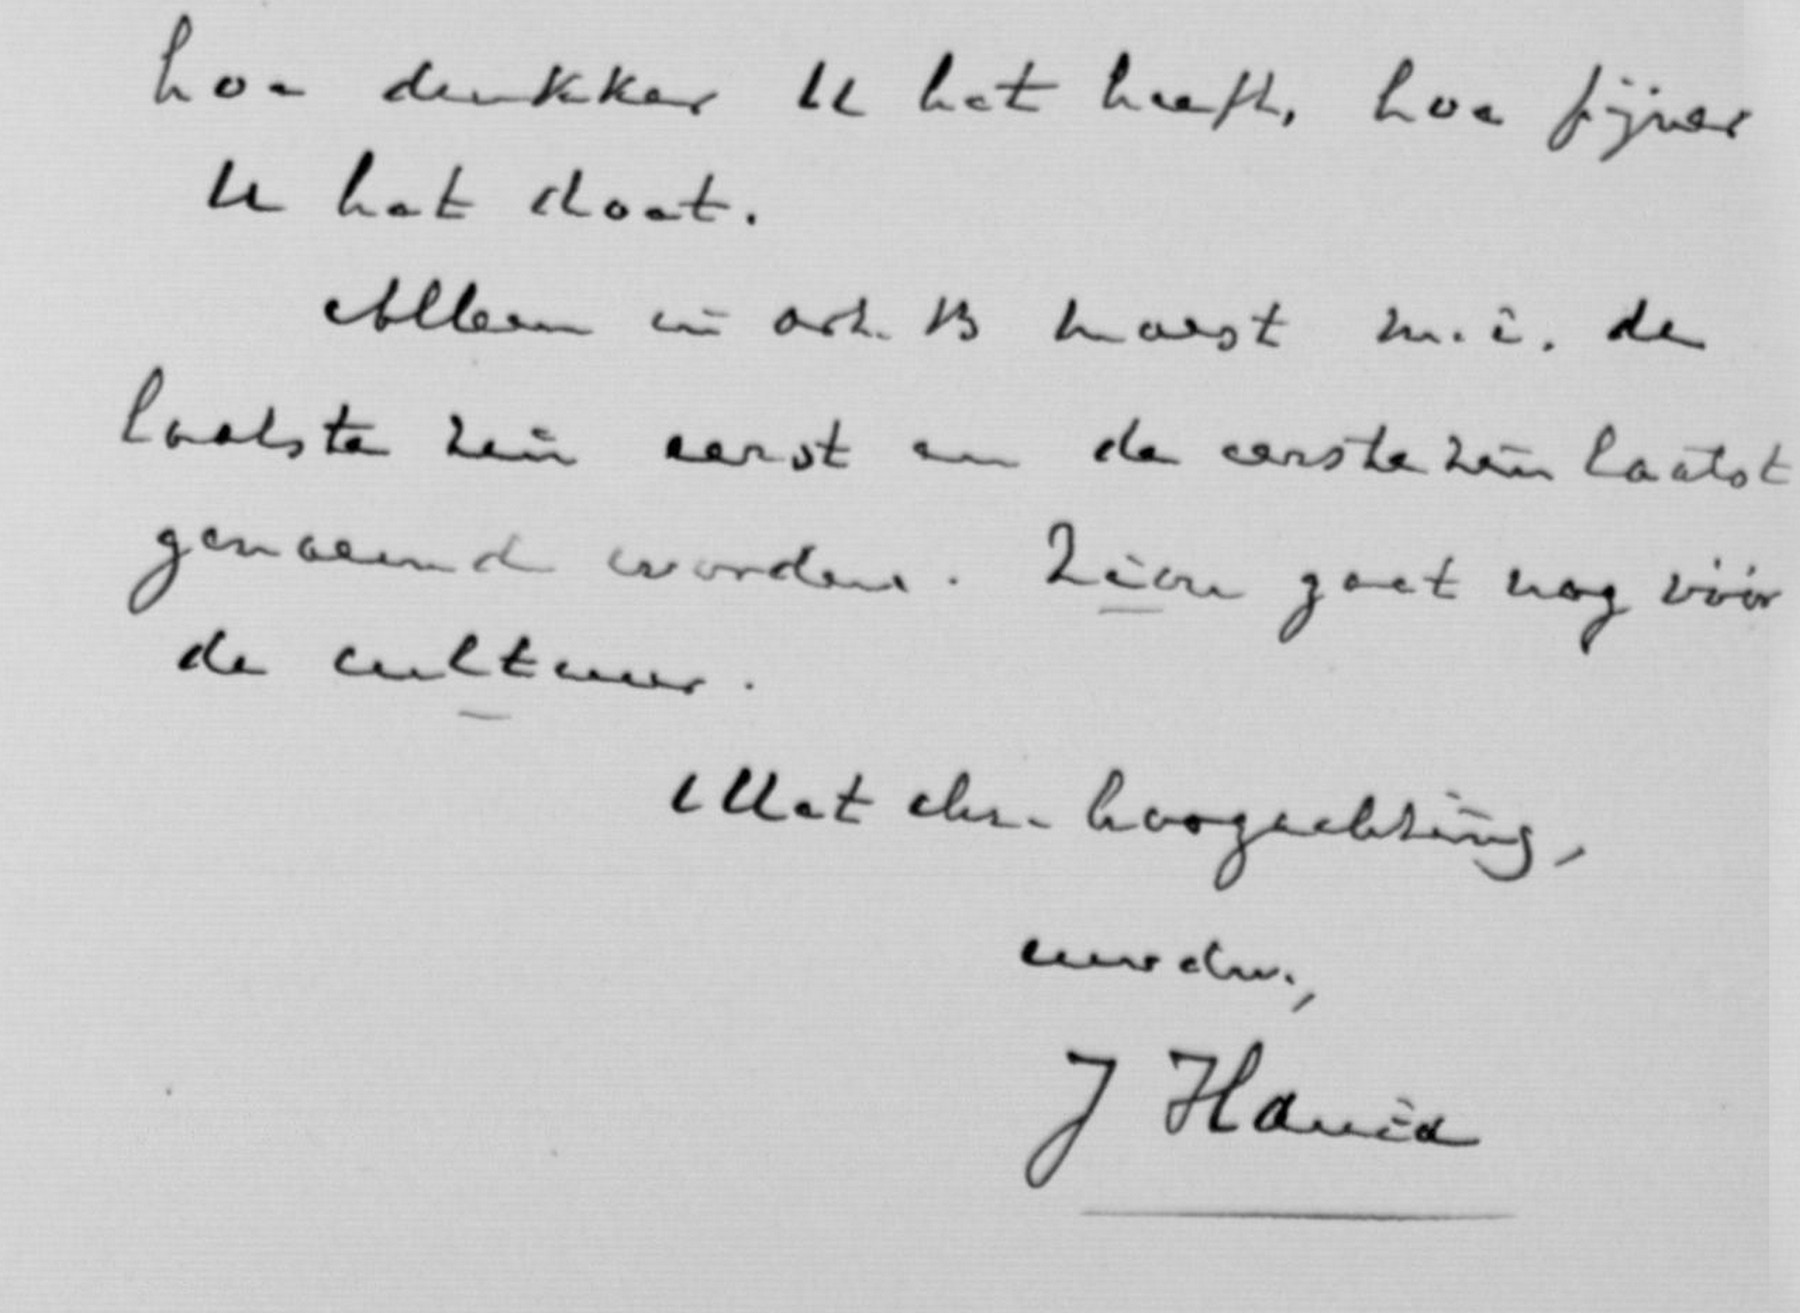 hoe drukker U het heeft, hoe fijner
U het doet.
Alleen in art. 13 moest m.i. de
laatste zin eerst en de eerste zin laatst
genoemd worden. Zion gaat nog vóór
de cultuur.
Met chr. hoogachting,
uw dw.,
J